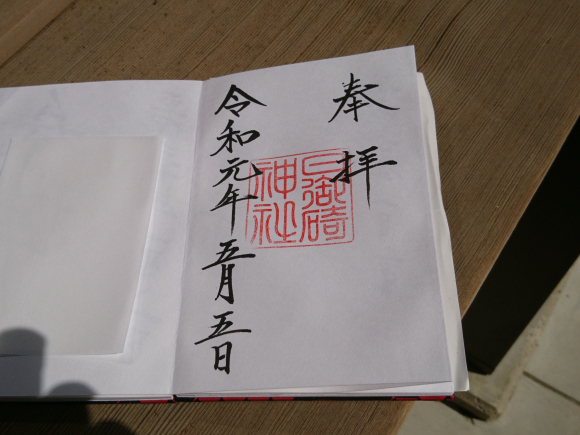 奉拝
日御碕
神社
令和元年五月五日